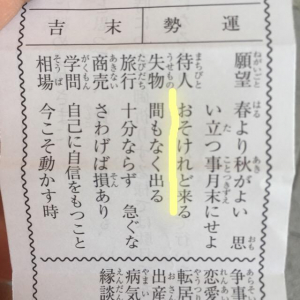 運勢 末吉
願望 春より秋がよい 思
い立つ事月末にせよ
待人 おそけれど来る
失物 間もなく出る
旅行 十分ならず 急ぐな
商売 さわげば損あり
学問 自己に自信をもつこと
相場 今こそ動かす時
争事
恋愛
転居
出産
病気
縁談